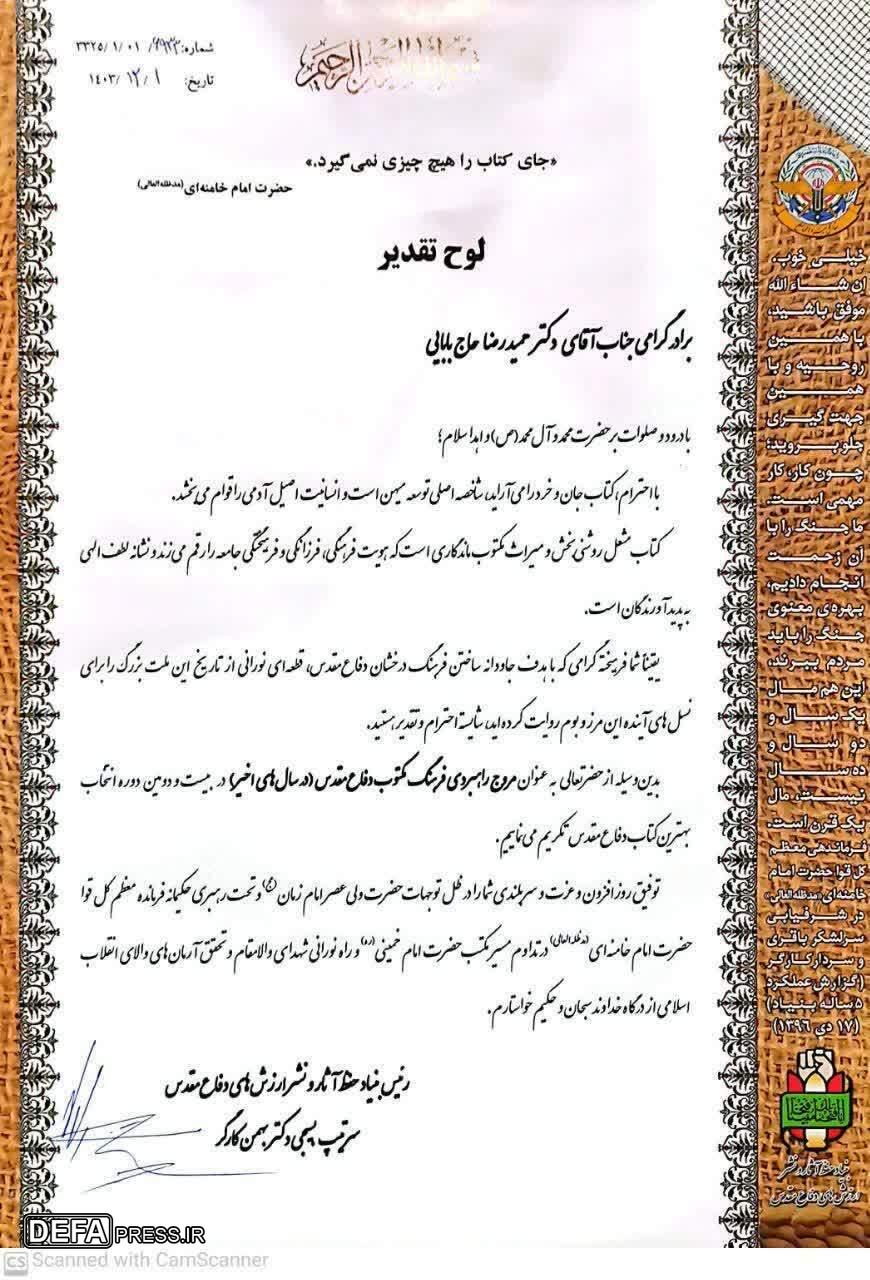 شماره: ۳۳۲۵/۱/۰۱/
تاریخ: ۱۴۰۳/۱۲/۱
«جای کتاب را هیچ چیزی نمی‌گیرد.»
حضرت امام خامنه‌ای (مدظله‌العالی)
لوح تقدیر
برادر گرامی جناب آقای دکتر حمیدرضا حاج بابایی
با درود و صلوات بر حضرت محمد و آل محمد (ص) و اهدا سلام؛
با احترام، کتاب جان و خرد را می‌آراید، شاخصه اصلی توسعه میهن است و انسانیت اصیل آدمی را قوام می‌بخشد.
کتاب مشعل روشنی‌بخش و میراث مکتوب ماندگاری است که هویت فرهنگی، فرزانگی و فریختگی جامعه را رقم می‌زند و نشانه لطف الهی
به پدیدآورندگان است.
یقیناً شما فریخته گرامی که با هدف جاودانه ساختن فرهنگ درخشان دفاع مقدس، قطعه‌ای نورانی از تاریخ این ملت بزرگ را برای
نسل‌های آینده این مرز و بوم روایت کرده‌اید، شایسته احترام و تقدیر هستید.
بدین‌وسیله از حضرتعالی به عنوان مروج راهبردی فرهنگ مکتوب دفاع مقدس (در سال‌های اخیر) در بیست و دومین دوره انتخاب
بهترین کتاب دفاع مقدس تکریم می‌نماییم.
توفیق روزافزون و عزت و سربلندی شما را در ظل توجهات حضرت ولی عصر امام زمان (عج) و تحت رهبری حکیمانه فرمانده معظم کل قوا
حضرت امام خامنه‌ای (مدظله‌العالی) در تداوم مسیر مکتب حضرت امام خمینی (ره) و راه نورانی شهدای والامقام و تحقق آرمان‌های والای انقلاب
اسلامی از درگاه خداوند سبحان و حکیم خواستارم.
رئیس بنیاد حفظ آثار و نشر ارزش‌های دفاع مقدس
سرتیپ بسیجی دکتر بهمن کارگر
خیلی خوب،
ان شاءالله
موفق باشید،
با همین
روحیه و با
همین
جهت گیری
جلو بروید؛
چون کار، کار
مهمی است.
ما جنگ را با
آن زحمت
انجام دادیم،
بهره‌ی معنوی
جنگ را باید
مردم ببرند،
این هم مال
یک سال و
دو سال و
ده سال
نیست، مال
یک قرن است.
فرماندهی معظم
کل قوا حضرت امام
خامنه‌ای «مدظله‌العالی»
در شرفیابی
سرلشکر باقری
و سردار کارگر
(گزارش عملکرد
۵ ساله بنیاد)
(۱۷ دی ۱۳۹۶)
بنیاد حفظ آثار و نشر
ارزش‌های دفاع مقدس
DEFAPRESS.IR
CS Scanned with CamScanner